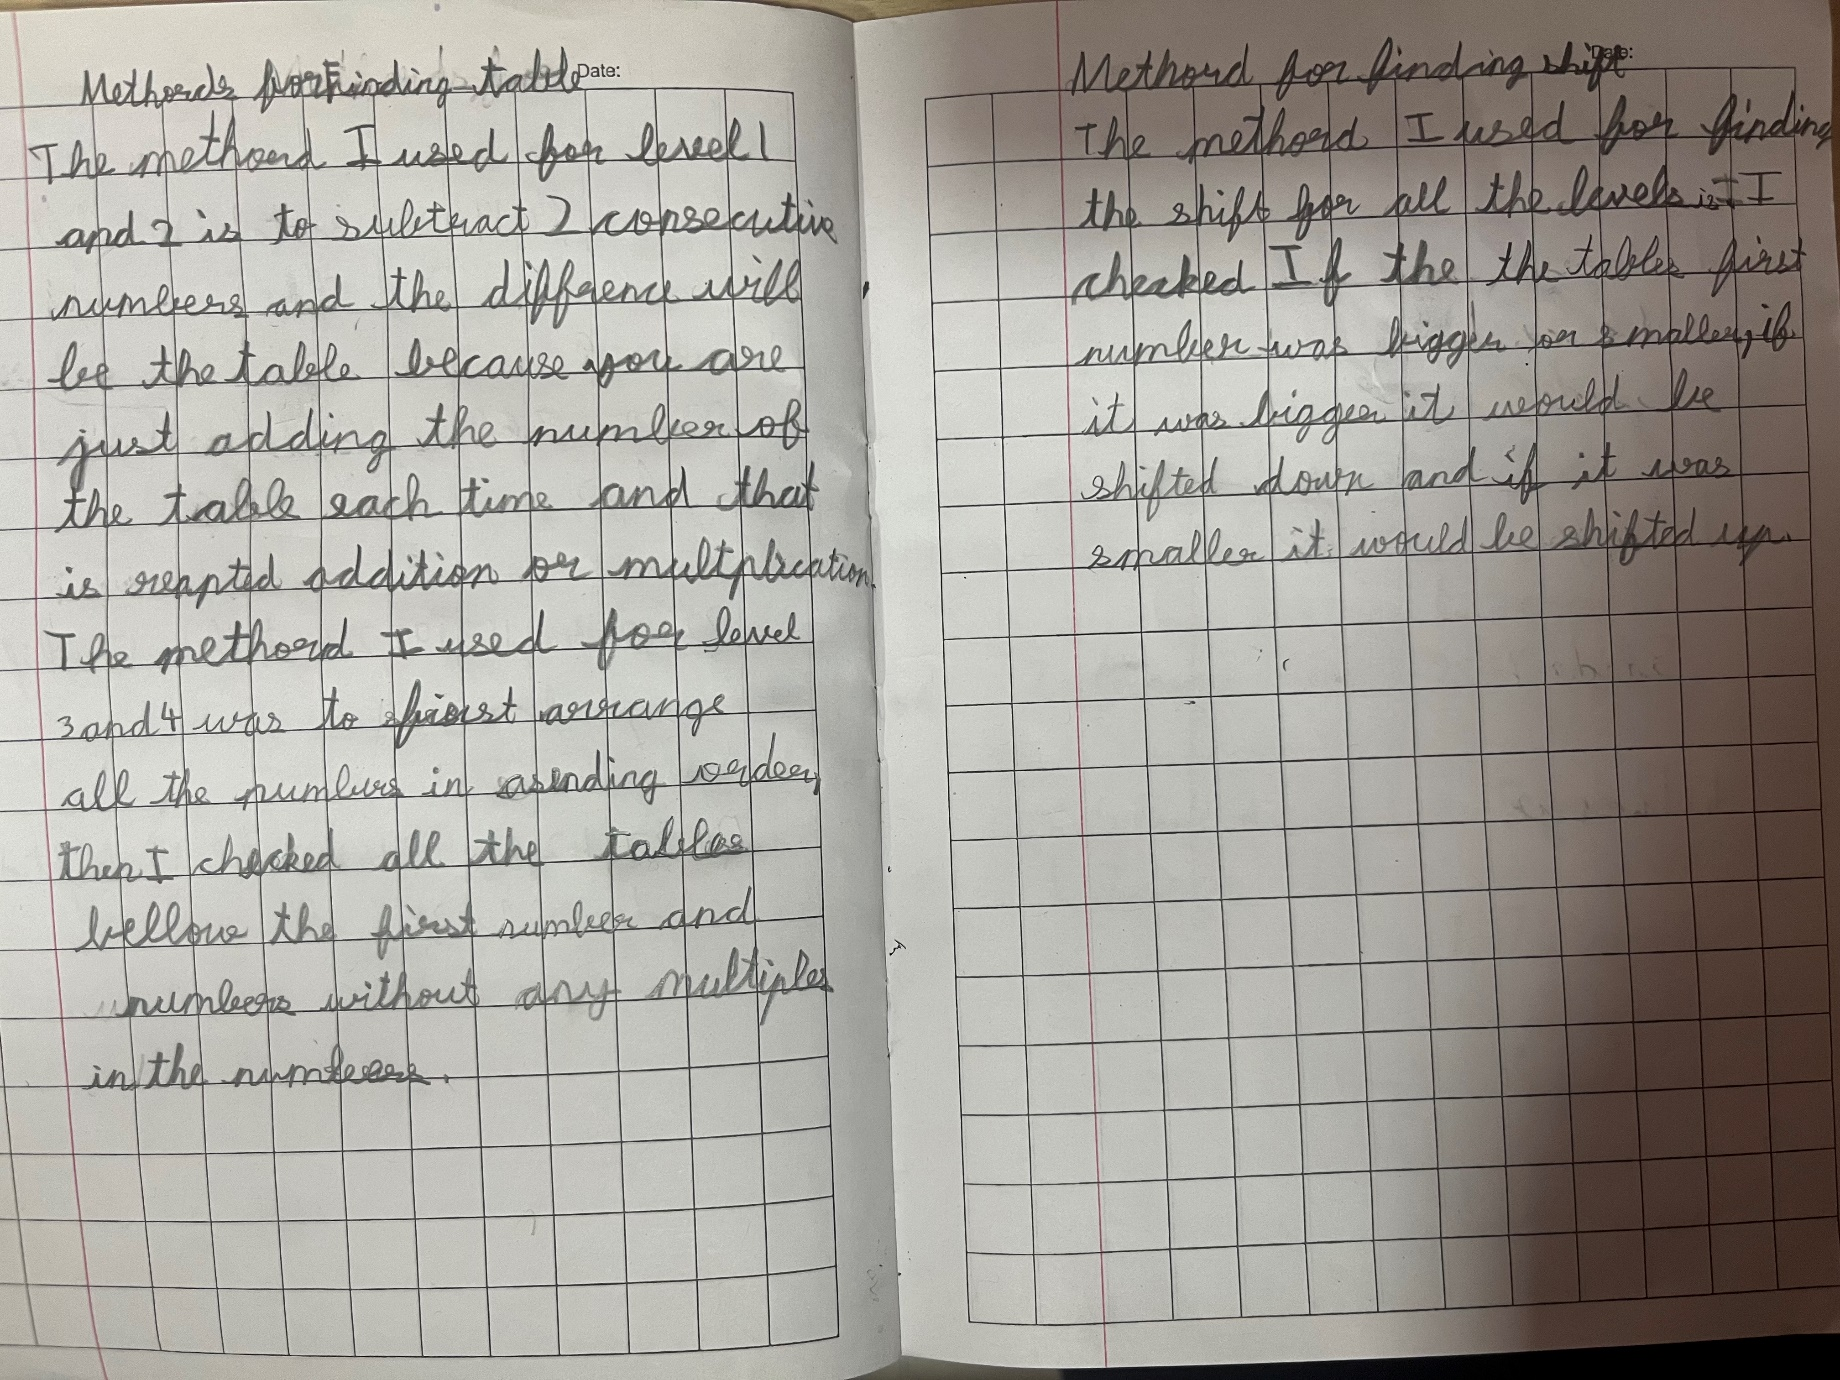 Methords for Finding table
Date:
The methord I used for level 1
and 2 is to subtract 2 consecutive
numbers and the diffrence will
be the table because you are
just adding the number of
the table each time and that
is reapted addition or multplication.
The methord I used for level
3 and 4 was to first arrange
all the numbers in asending order,
then I checked all the tables
bellow the first number and
numbers without any multiples
in the numbers.
Methord for finding shift
Date:
The methord I used for finding
the shift for all the levels is I I
checked If the the tables first
number was bigger or smaller, if
it was bigger it would be
shifted down and if it was
smaller it would be shifted up.